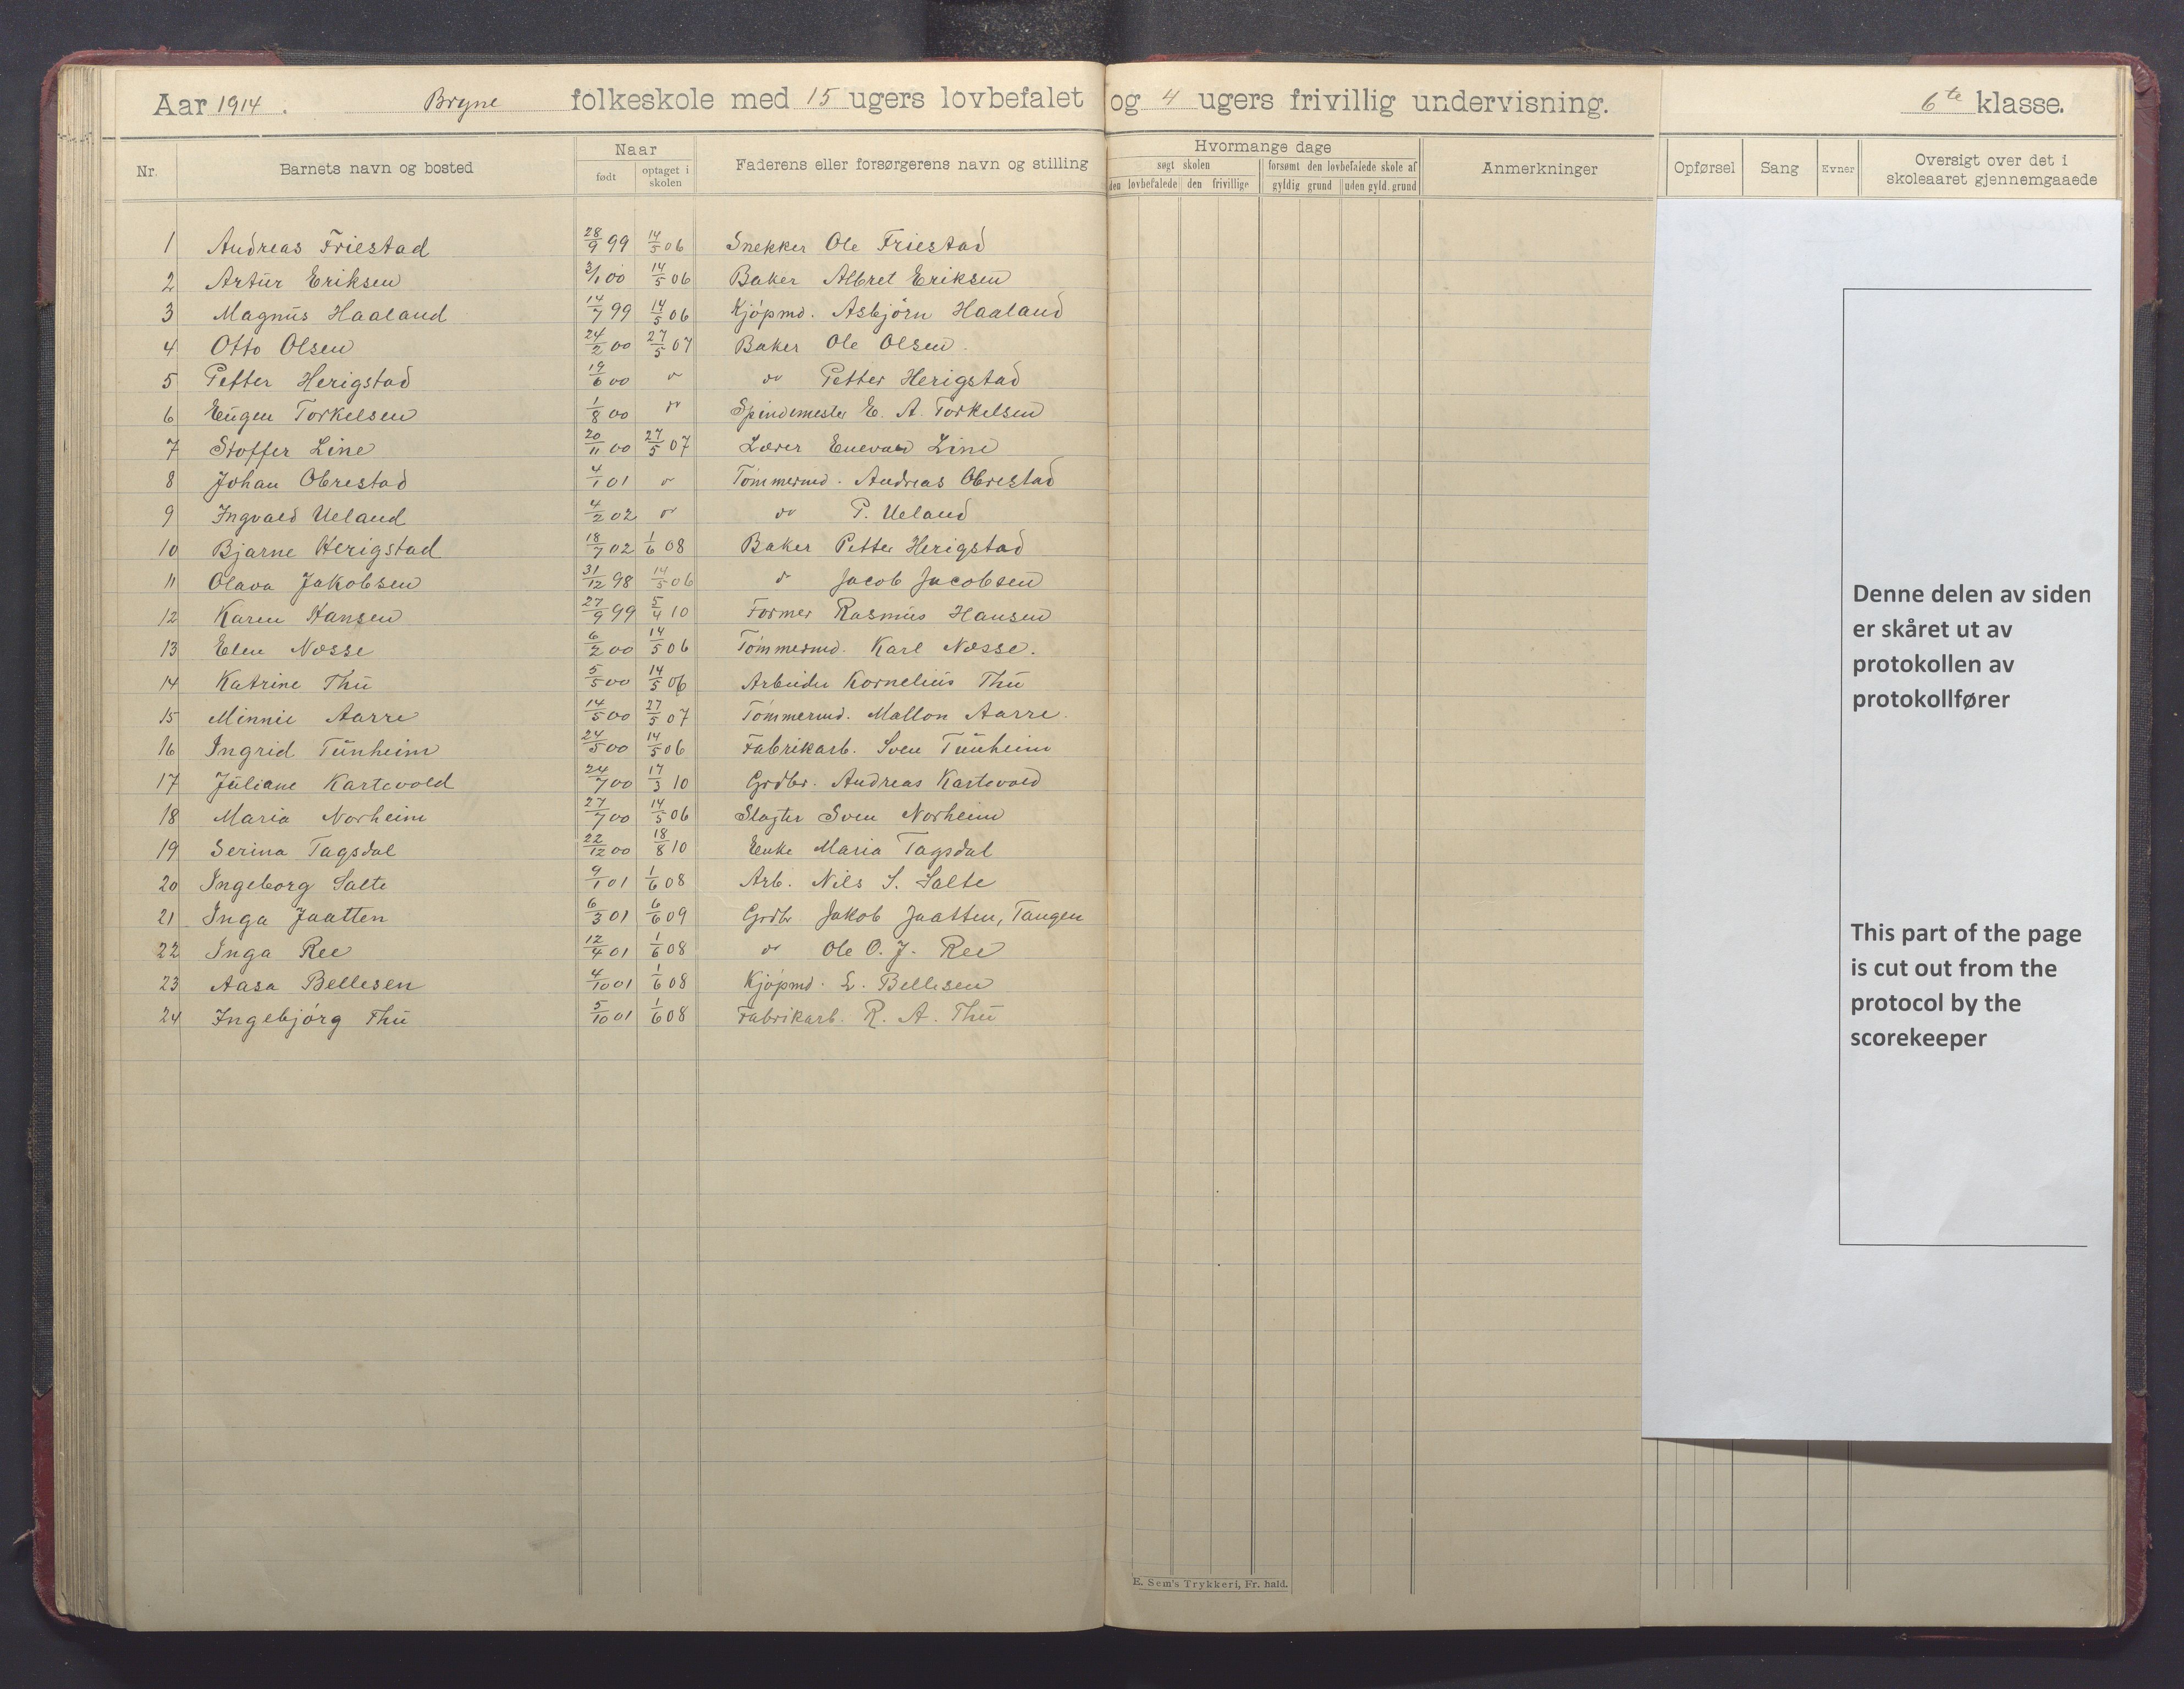 Aar 1914. Bryne folkeskole med 15 ugers lovbefalet og 4 ugers frivillig undervisning. 6te klasse.
Nr. Barnets navn og bosted Naar født optaget i skolen Faderens eller forsørgerens navn og stilling Hvormange dage søgt skolen den lovbefalede den frivillige forsømt den lovbefalede skole af gyldig grund uden gyld. grund Anmerkninger Opførsel Sang Evner Oversigt over det i skoleaaret gjennemgaaede
1 Andreas Friestad 28/9 99 14/5 06 Snekker Ole Friestad
2 Artur Eriksen 3/1 00 14/5 06 Baker Albret Eriksen
3 Magnus Haaland 14/7 99 14/5 06 Kjöpmd. Asbjörn Haaland
4 Otto Olsen 24/2 00 27/5 07 Baker Ole Olsen.
5 Petter Herigstad 19/6 00 " do Petter Herigstad
6 Eugen Torkelsen 1/8 00 " Spindemester E. A. Torkelsen
7 Stoffer Line 20/11 00 27/5 07 Lærer Enevald Line
8 Johan Obrestad 4/1 01 " Tömmermd. Andreas Obrestad
9 Ingvald Ueland 4/2 02 " do P. Ueland
10 Bjarne Herigstad 18/7 02 1/6 08 Baker Petter Herigstad
11 Olava Jakobsen 31/12 98 14/5 06 do Jacob Jacobsen
12 Karen Hansen 27/9 99 5/4 10 Former Rasmus Hansen
13 Elen Næsse 6/2 00 14/5 06 Tömmermd. Karl Næsse.
14 Katrine Thu 5/5 00 14/5 06 Arbeider Kornelius Thu
15 Minnie Aarre 14/5 00 27/5 07 Tömmermd. Mallon Aarre.
16 Ingrid Tunheim 24/5 00 14/5 06 Fabrikarb. Sven Tunheim
17 Juliane Kartevold 24/7 00 17/3 10 Grdbr. Andreas Kartevold
18 Maria Norheim 27/7 00 14/5 06 Slagter Sven Norheim
19 Serina Tagsdal 22/12 00 18/8 10 Enke Maria Tagsdal
20 Ingeborg Salte 9/1 01 1/6 08 Arb. Nils S. Salte
21 Inga Jaatten 6/3 01 6/6 09 Grdbr Jakob Jaatten, Tangen
22 Inga Ree 12/4 01 1/6 08 do Ole O. J. Ree
23 Aasa Bellesen 4/10 01 1/6 08 Kjöpmd. L. Bellesen
24 Ingebjörg Thu 5/10 01 1/6 08 Fabrikarb. R. A. Thu
E. Sem's Trykkeri, Fr. hald.
Denne delen av siden
er skåret ut av
protokollen av
protokollfører
This part of the page
is cut out from the
protocol by the
scorekeeper